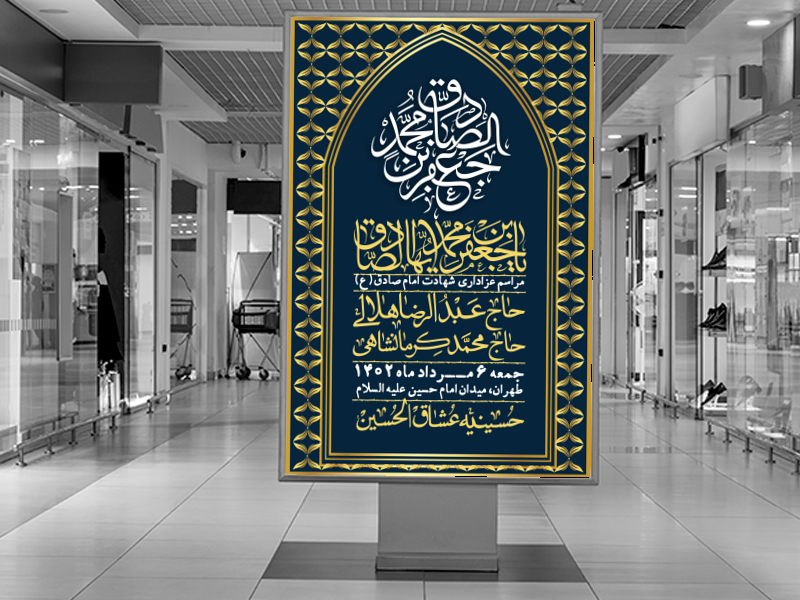 جعفر بن محمد الصادق
یا جعفر بن محمد ایها الصادق
مراسم عزاداری شهادت امام صادق (ع)
حاج عبدالرضا هلالی
حاج محمد کرمانشاهی
جمعه ۶ مرداد ماه ۱۴۰۲
طهران، میدان امام حسین علیه السلام
حسینیه عشاق الحسین